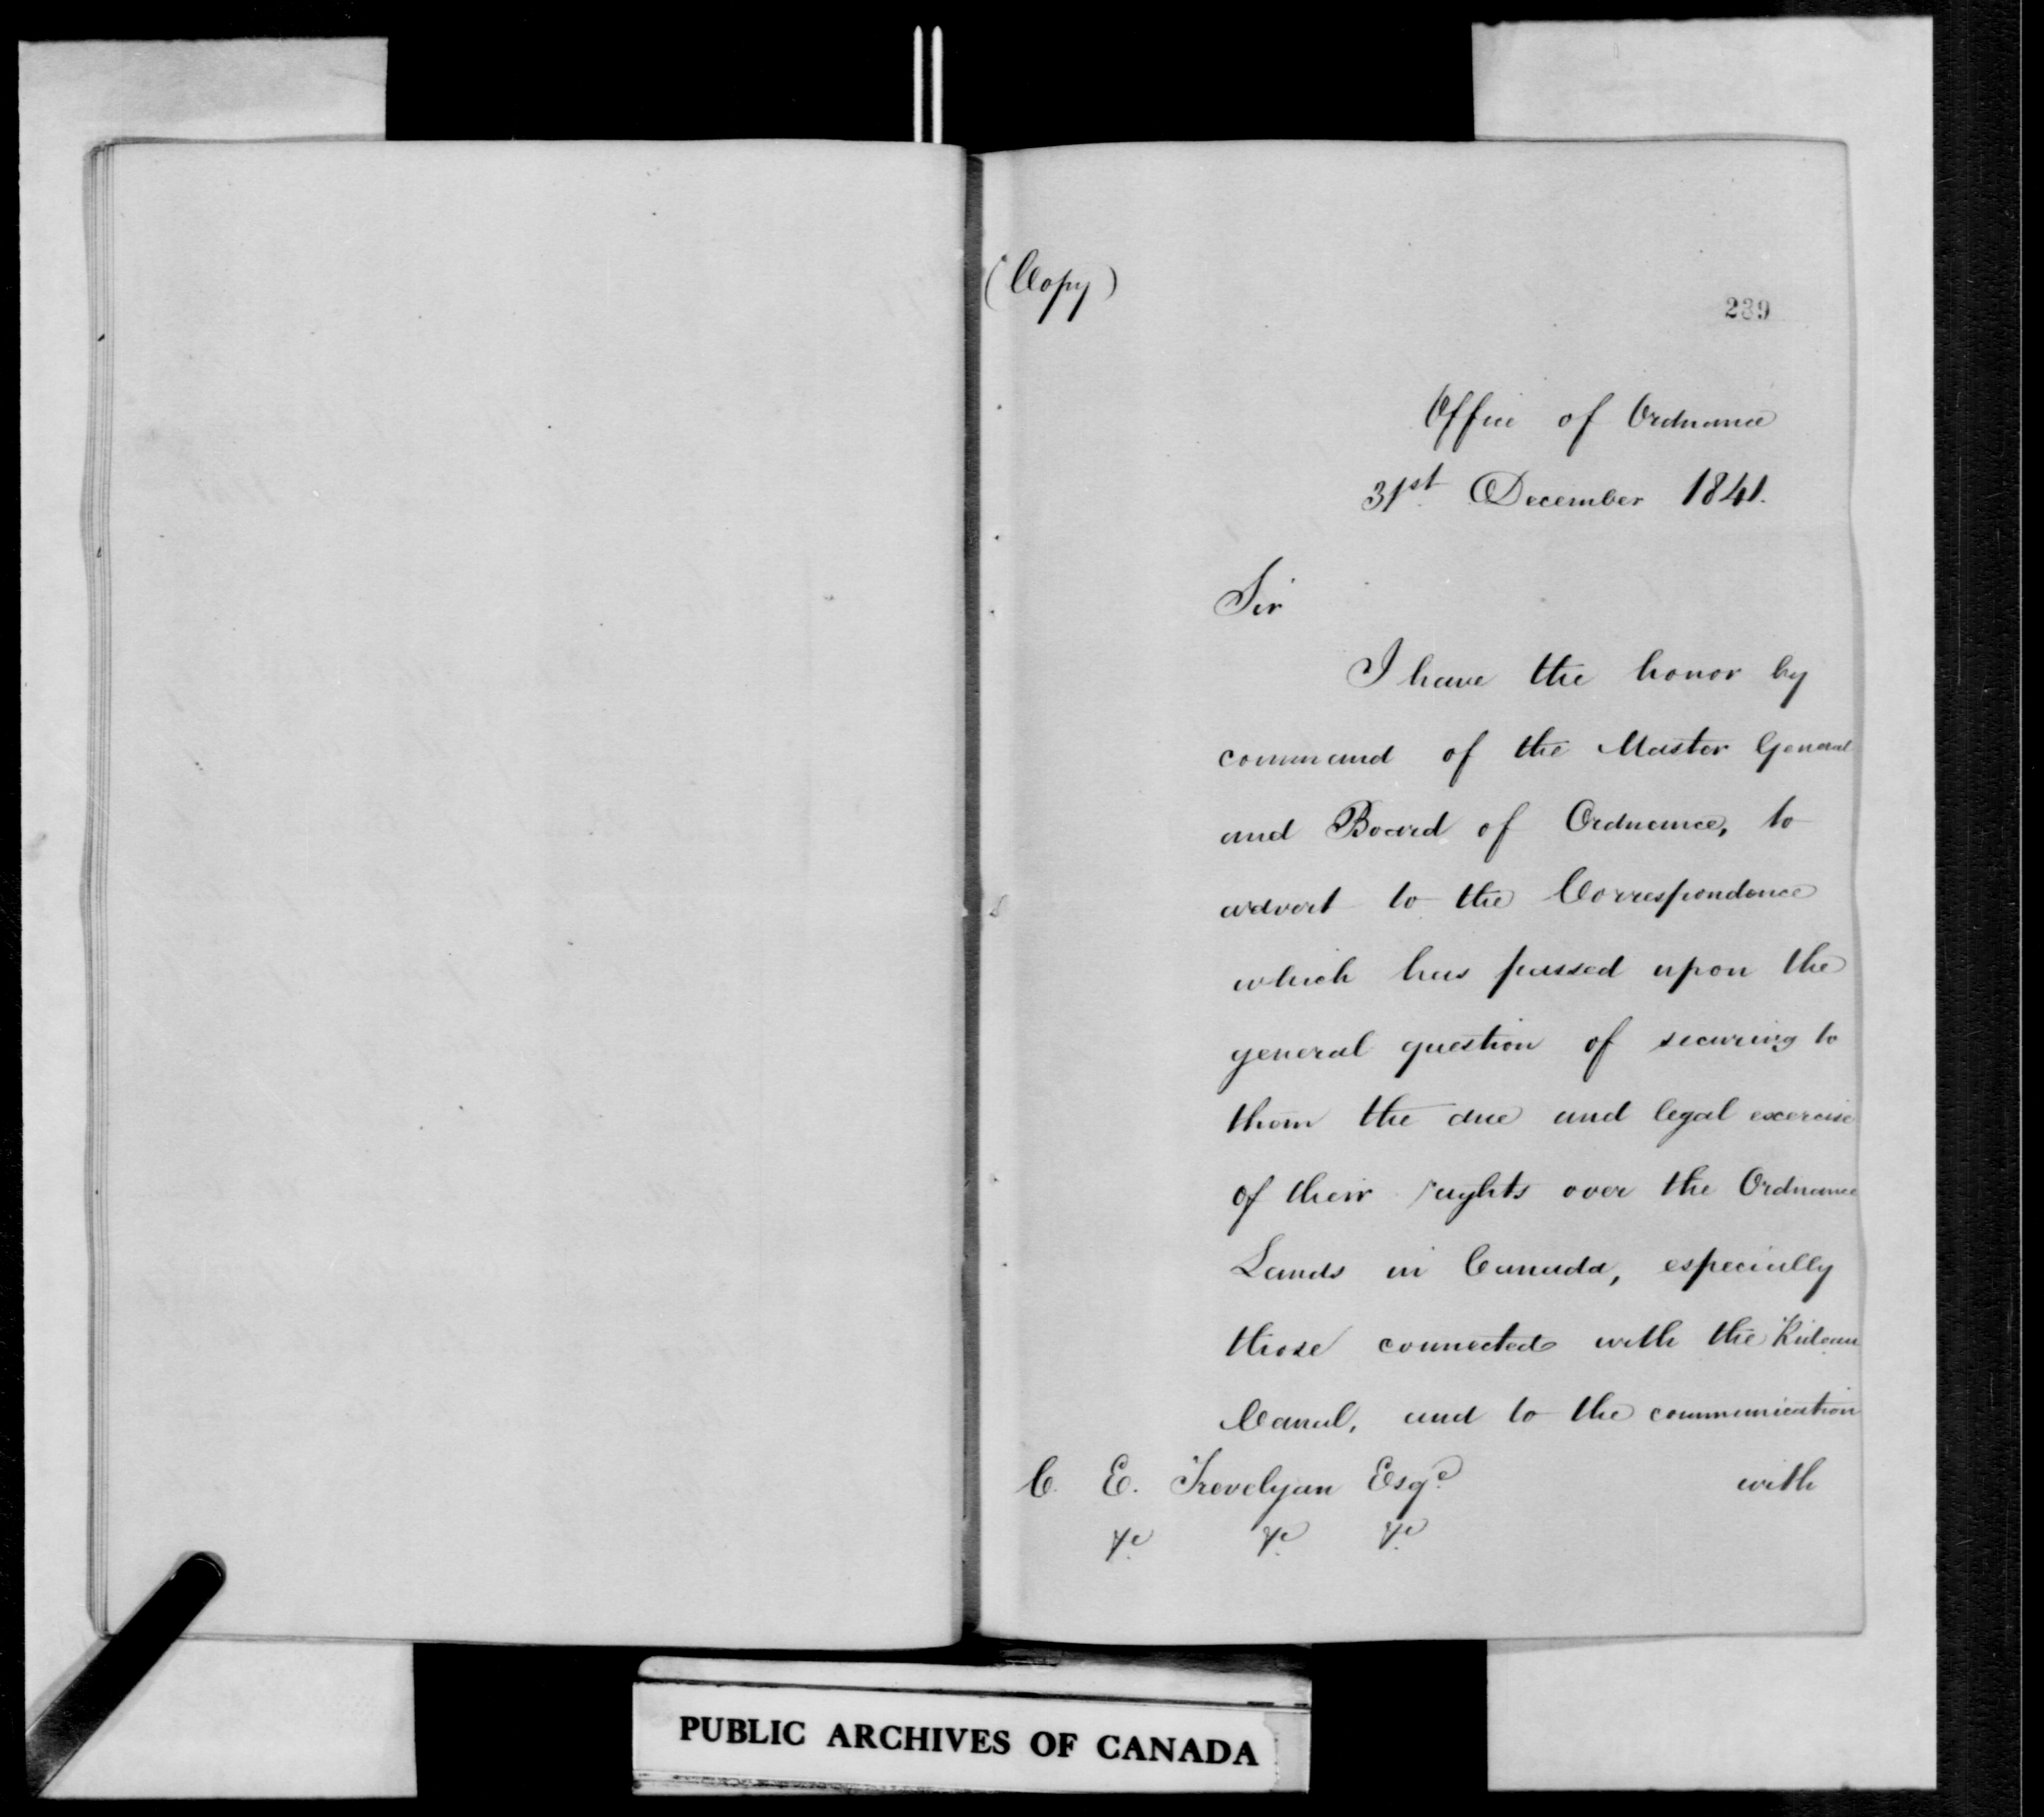 (Copy)
239
Office of Ordnance
31st December 1841.
Sir
I have the honor by
command of the Master General
and Board of Ordnance, to
advert to the Correspondence
which has passed upon the
general question of securing to
them the due and legal exercise
of their rights over the Ordnance
Lands in Canada, especially
those connected with the Rideau
Canal, and to the communication
C. E. Trevelyan Esqe. with
&c &c &c
PUBLIC ARCHIVES OF CANADA